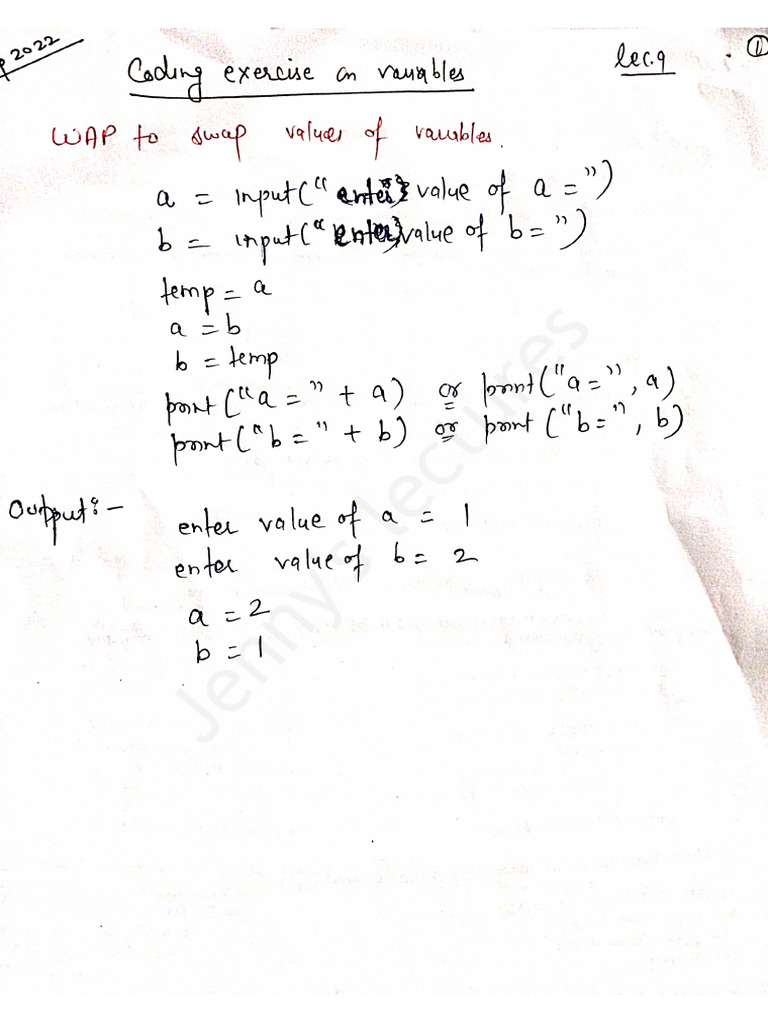 2022
Coding exercise on variables
lec.9
①
WAP to swap values of variables.
a = input(“enter value of a =”)
b = input(“enter value of b=”)
temp = a
a = b
b = temp
print(“a=” + a) or print(“a=”, a)
print(“b=” + b) or print (“b=”, b)
Output:-
enter value of a = 1
enter value of b= 2
a = 2
b = 1
Jenny's lectures